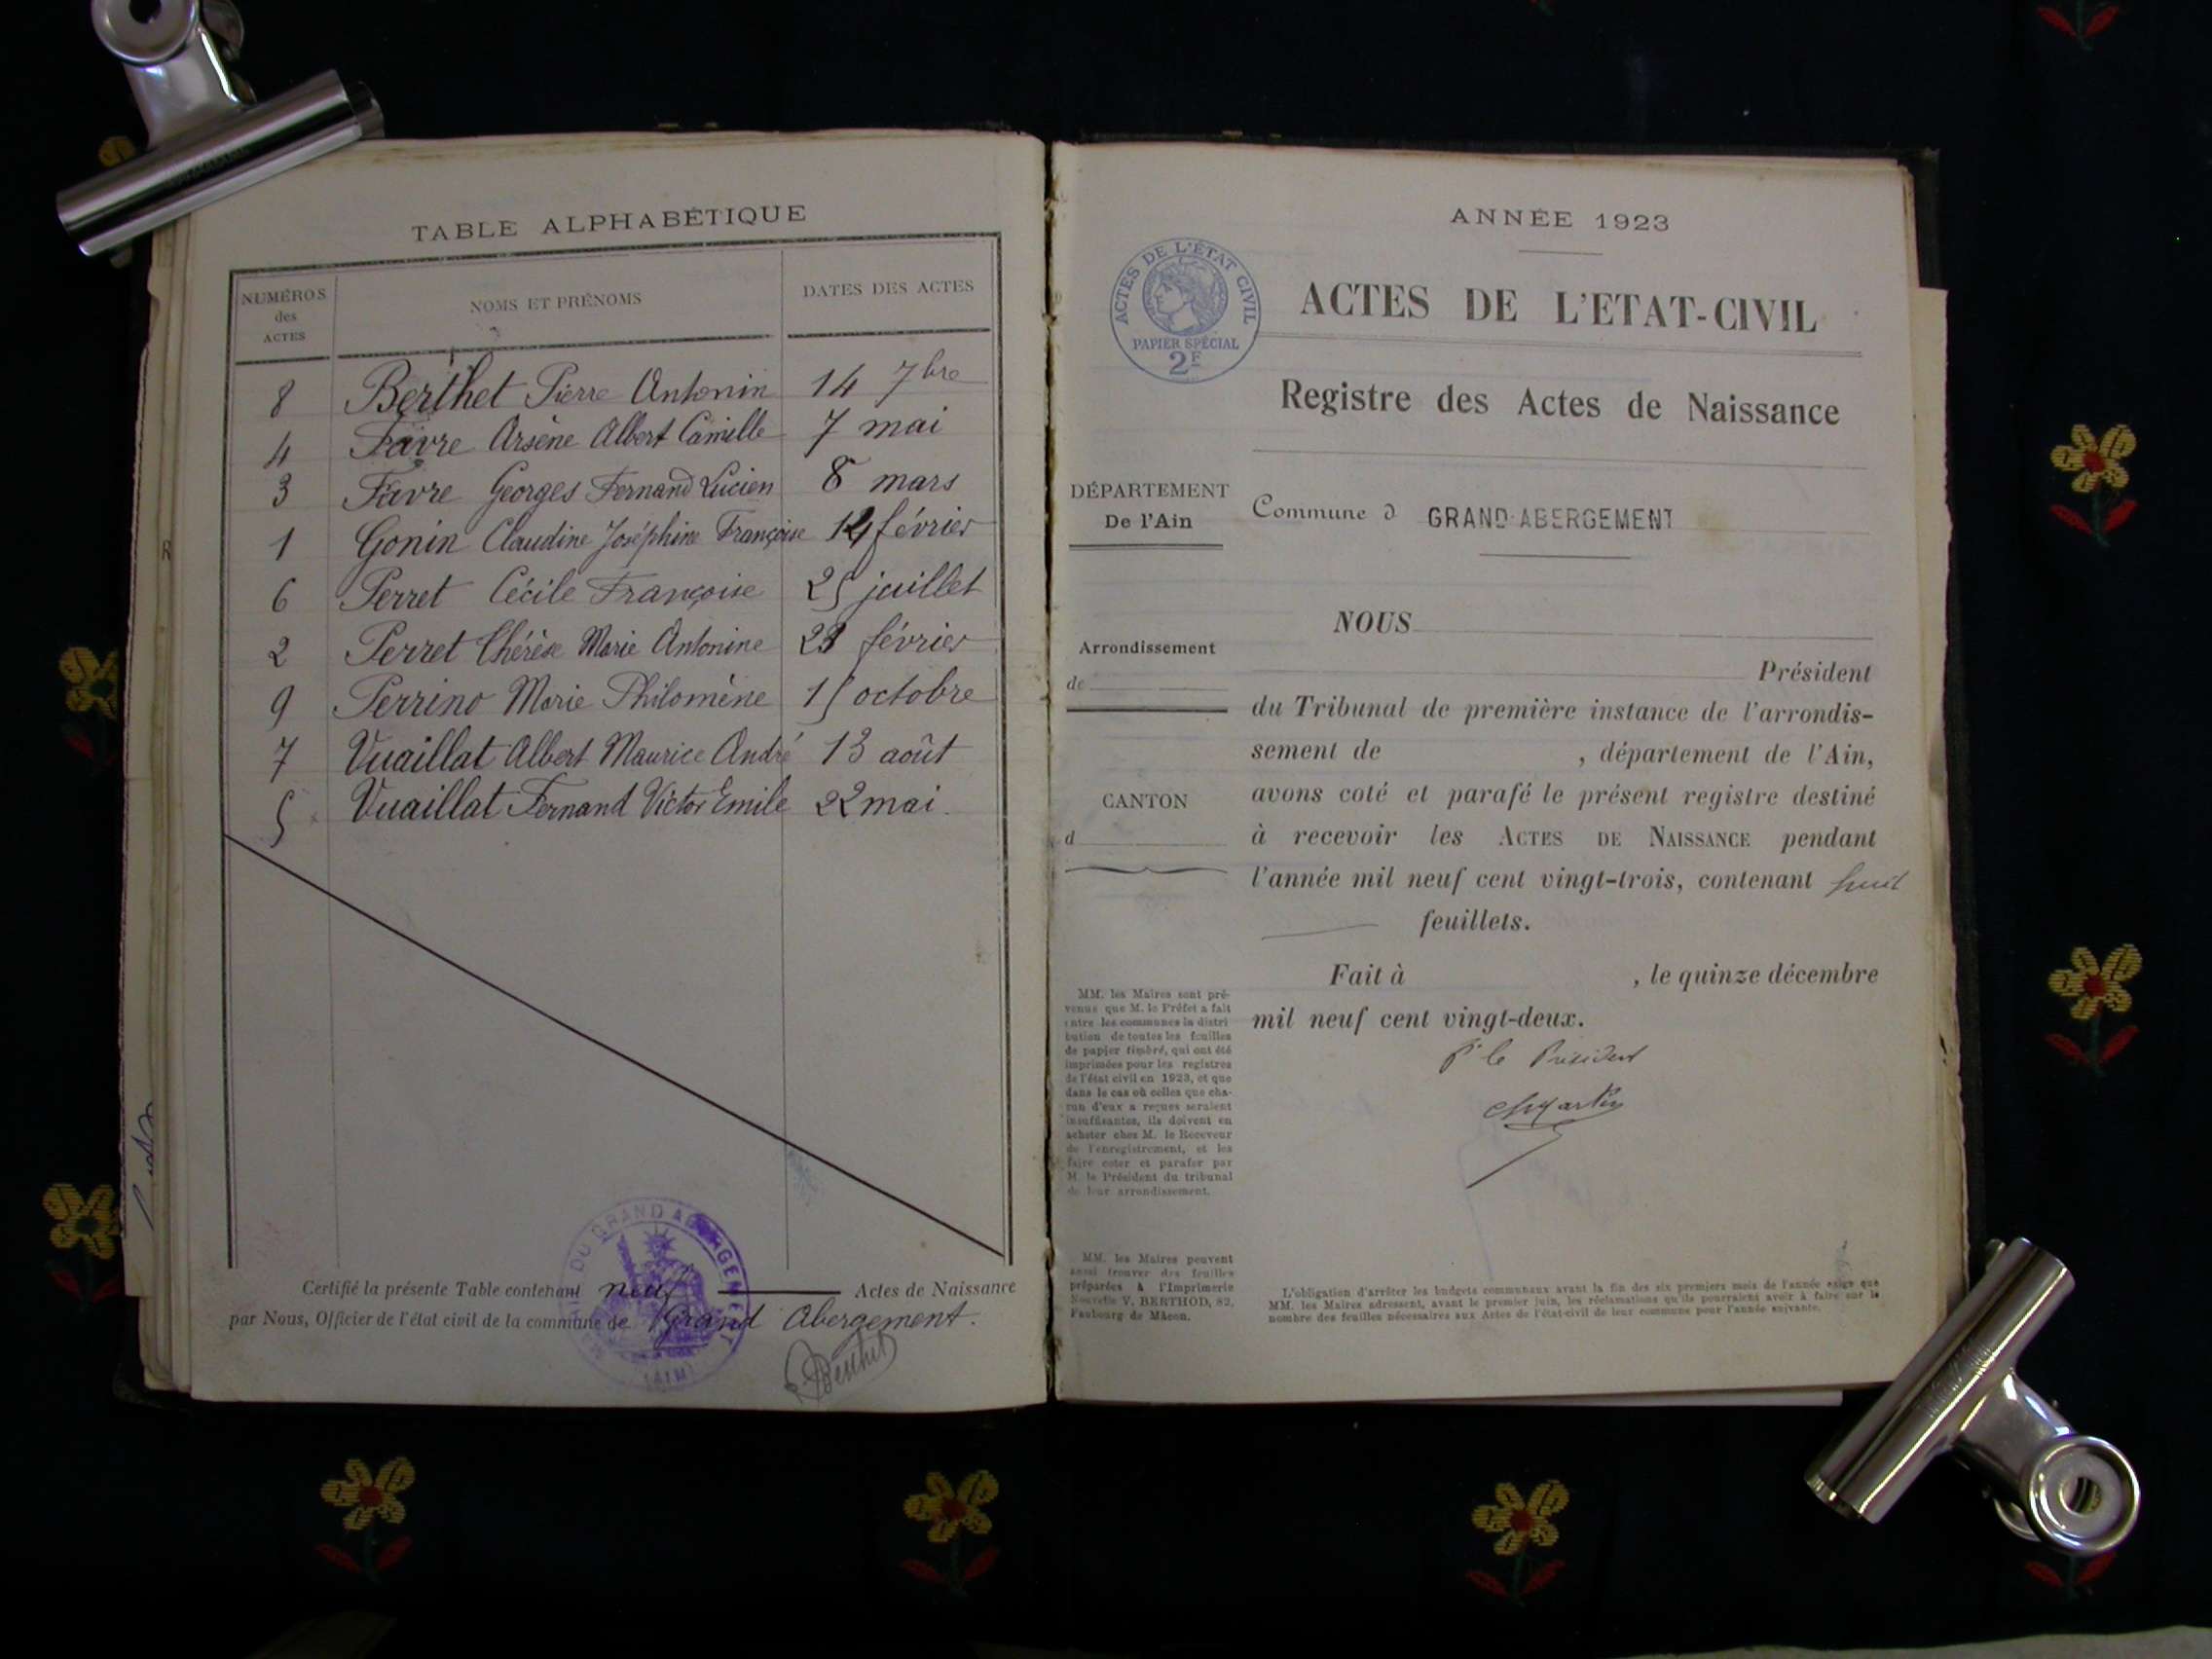 TABLE ALPHABÉTIQUE
NUMÉROS des ACTES
NOMS ET PRÉNOMS
DATES DES ACTES
8 Berthet Pierre Antonin 14 7bre
4 Favre Arsène Albert Camille 7 mai
3 Favre Georges Fernand Lucien 8 mars
1 Gonin Claudine Joséphine Françoise 14 février
6 Perret Cécile Françoise 25 juillet
2 Perret Thérèse Marie Antonine février
9 Perrino Marie Philomène 15 octobre
7 Vuaillat Albert Maurice André 13 août
5 Vuaillat Fernand Victor Emile 22 mai.
Certifié la présente Table contenant neuf Actes de Naissance
par Nous, Officier de l'état civil de la commune de Grand Abergement.
DU GRAND ABERGEMENT
(AIN)
Berthet
ANNÉE 1923
ACTES DE L'ÉTAT CIVIL
PAPIER SPÉCIAL
2F
ACTES DE L'ETAT-CIVIL
Registre des Actes de Naissance
DÉPARTEMENT
De l'Ain
Commune d GRAND-ABERGEMENT
Arrondissement
de
CANTON
d
NOUS
Président
du Tribunal de première instance de l'arrondis-
sement de , département de l'Ain,
avons coté et parafé le présent registre destiné
à recevoir les ACTES DE NAISSANCE pendant
l'année mil neuf cent vingt-trois, contenant huit
feuillets.
Fait à , le quinze décembre
mil neuf cent vingt-deux.
P. le Président
MM. les Maires sont pré-
venus que M. le Préfet a fait
entre les communes la distri
bution de toutes les feuilles
de papier timbré, qui ont été
imprimées pour les registres
de l'état civil en 1923, et que
dans le cas où celles que cha-
cun d'eux a reçues seraient
insuffisantes, ils doivent en
acheter chez M. le Receveur
de l'enregistrement, et les
faire coter et parafer par
M. le Président du tribunal
de leur arrondissement.
MM. les Maires peuvent
aussi trouver des feuilles
préparées à l'Imprimerie
Nouvelle V. BERTHOD, 82,
Faubourg de Mâcon.
L'obligation d'arrêter les budgets communaux avant la fin des six premiers mois de l'année exige que
MM. les Maires adressent, avant le premier juin, les réclamations qu'ils pourraient avoir à faire sur le
nombre des feuilles nécessaires aux Actes de l'état-civil de leur commune pour l'année suivante.